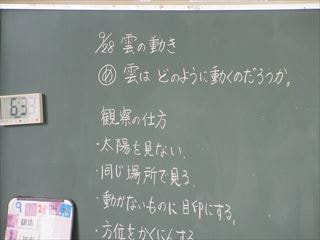 9/28 雲の動き
め 雲は どのように動くのだろうか。
観察の仕方
・太陽を見ない.
・同じ場所で見る.
・動かないものに目印にする.
・方位をかくにんする